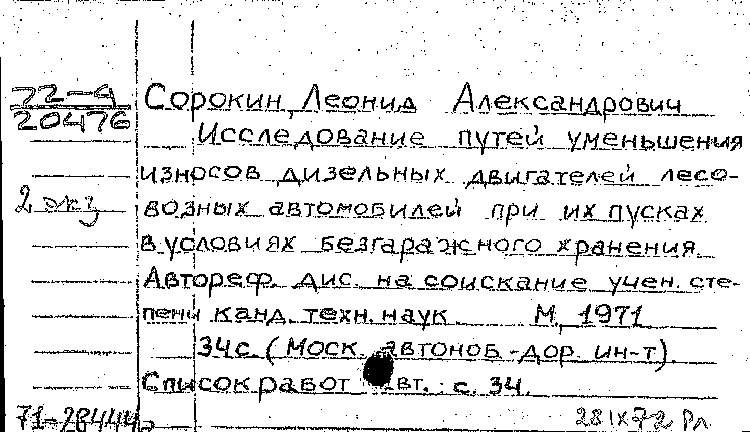 72-4
20476
Сорокин, Леонид Александрович
Исследование путей уменьшения
износов дизельных двигателей лесо-
2 экз
возных автомобилей при их пусках
в условиях безгаражного хранения.
Автореф. дис. на соискание учен. сте-
пени канд. техн. наук М., 1971
34с. (Моск. автомоб.-дор. ин-т).
Список работ авт.: с. 34.
71-28444а
28 IX 72 Рл